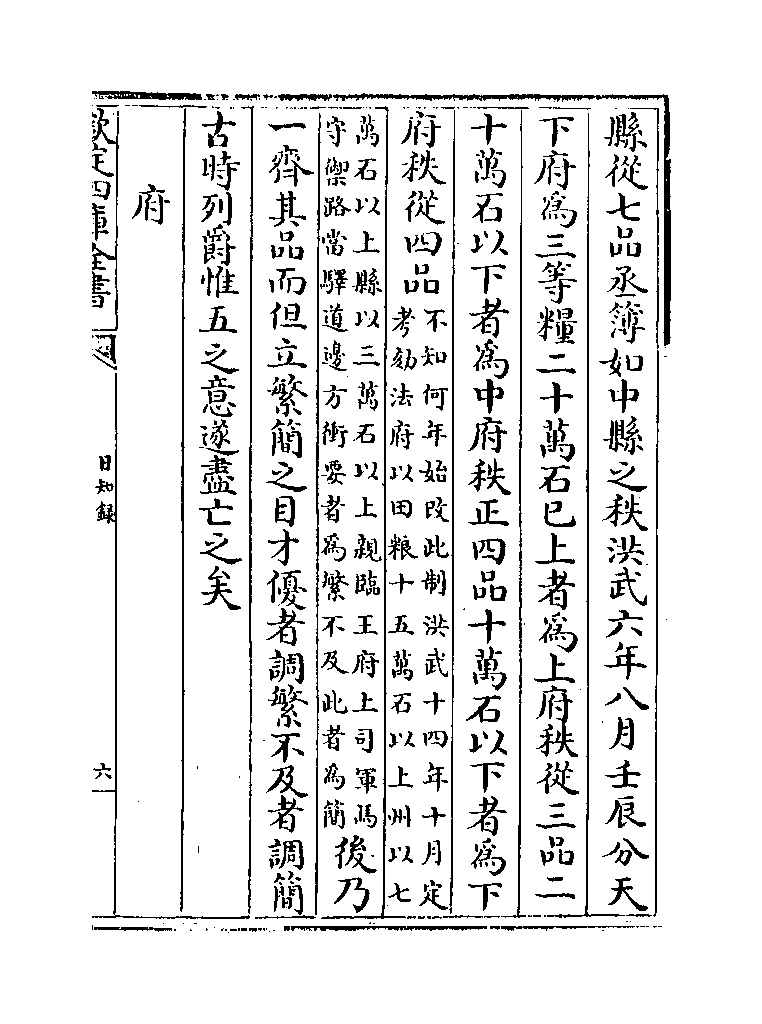 縣從七品丞簿如中縣之秩洪武六年八月壬辰分天
下府爲三等糧二十萬石已上者爲上府秩從三品二
十萬石以下者爲中府秩正四品十萬石以下者爲下
府秩從四品
不知何年始改此制洪武十四年十月定
考劾法府以田粮十五萬石以上州以七
萬石以上縣以三萬石以上親臨王府上司軍馬
守禦路當驛道邊方衝要者爲繁不及此者爲簡
後乃
一齊其品而但立繁簡之目才優者調繁不及者調簡
古時列爵惟五之意遂盡亡之矣
府
欽定四庫全書
日知錄
六